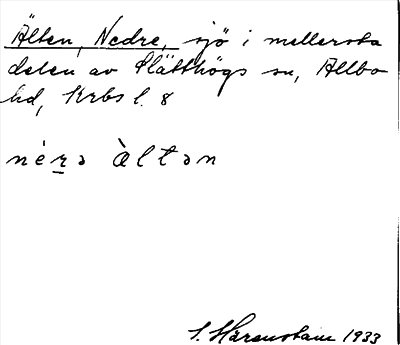 Älten, Nedre, sjö i mellersta
delen av Slätthögs sn, Allbo
hd, Krbs l. 8
nèrə àltən
S. Harenstam 1933